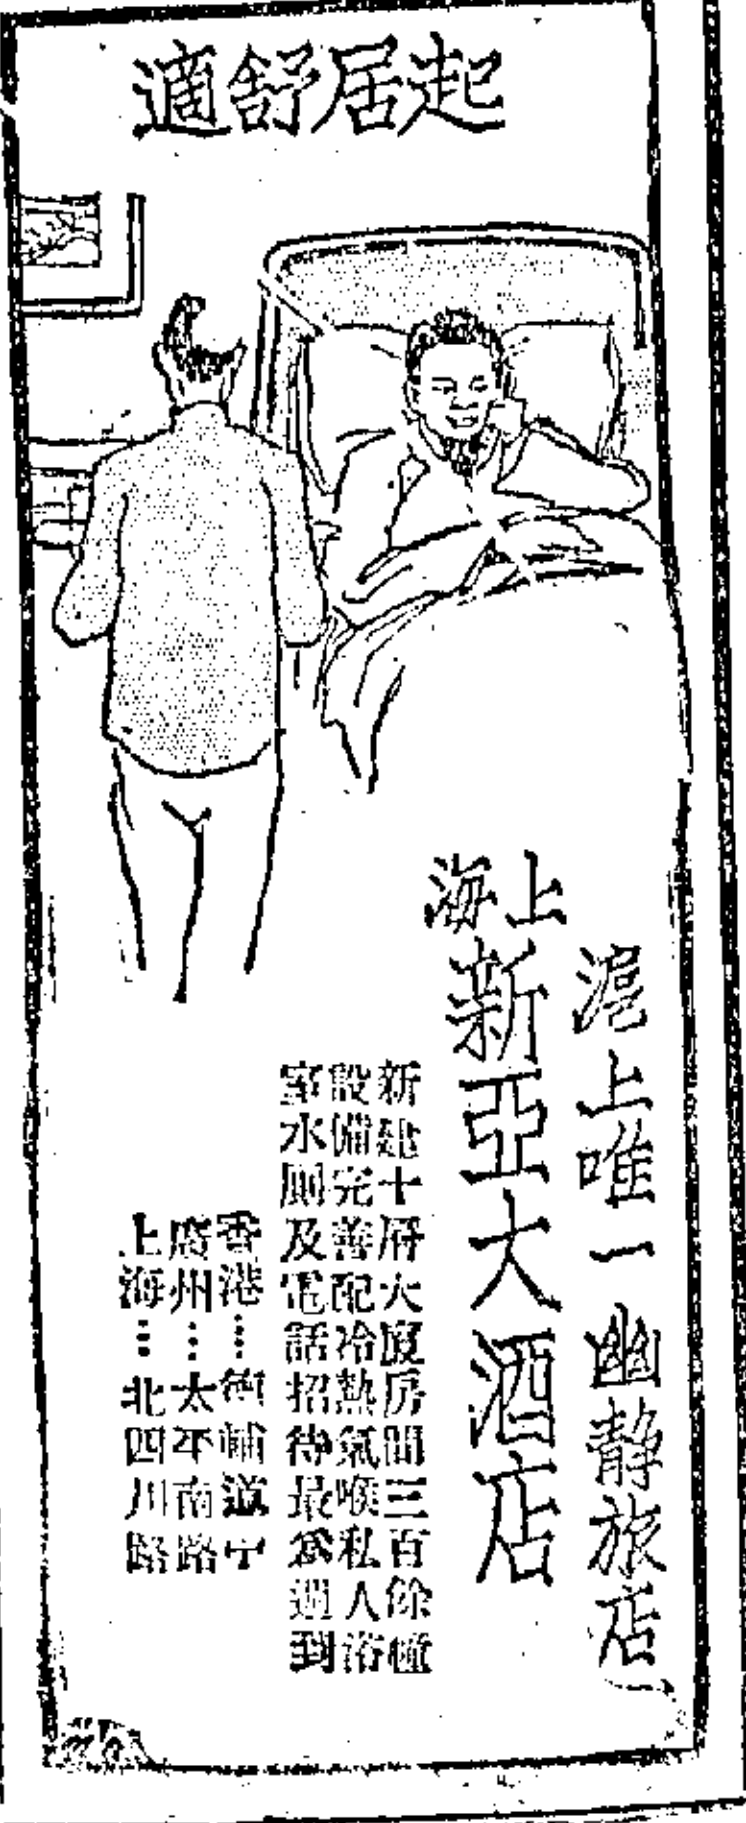 起居舒適
滬上唯一幽靜旅店
上海
新亞大酒店
新建十層大廈房間三百餘幢
設備完善配冷熱氣喉私人浴
室水厠及電話招待最為週到
香港⋮德輔道中
廣州⋮太平南路
上海⋮北四川路